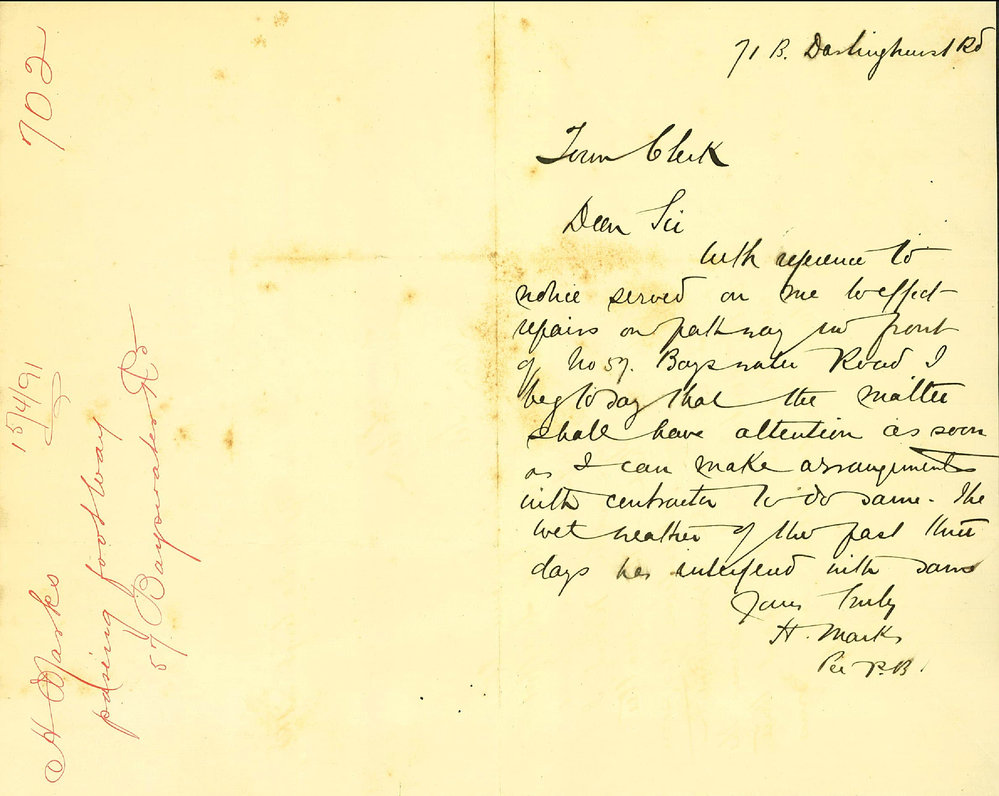 71 B. Darlinghurst Rd
Town Clerk
Dear Sir
With reference to
notice served on me to effect
repairs on pathway in front
of No 57. Bayswater Road I
beg to say that the matter
shall have attention as soon
as I can make arrangements
with contractor to do same. The
wet weather of the past three
days has interfered with same
Yours Truly
H. Marks
Per P.B.
702
15/4/91
H Marks
paving footway
57 Bayswater Rd